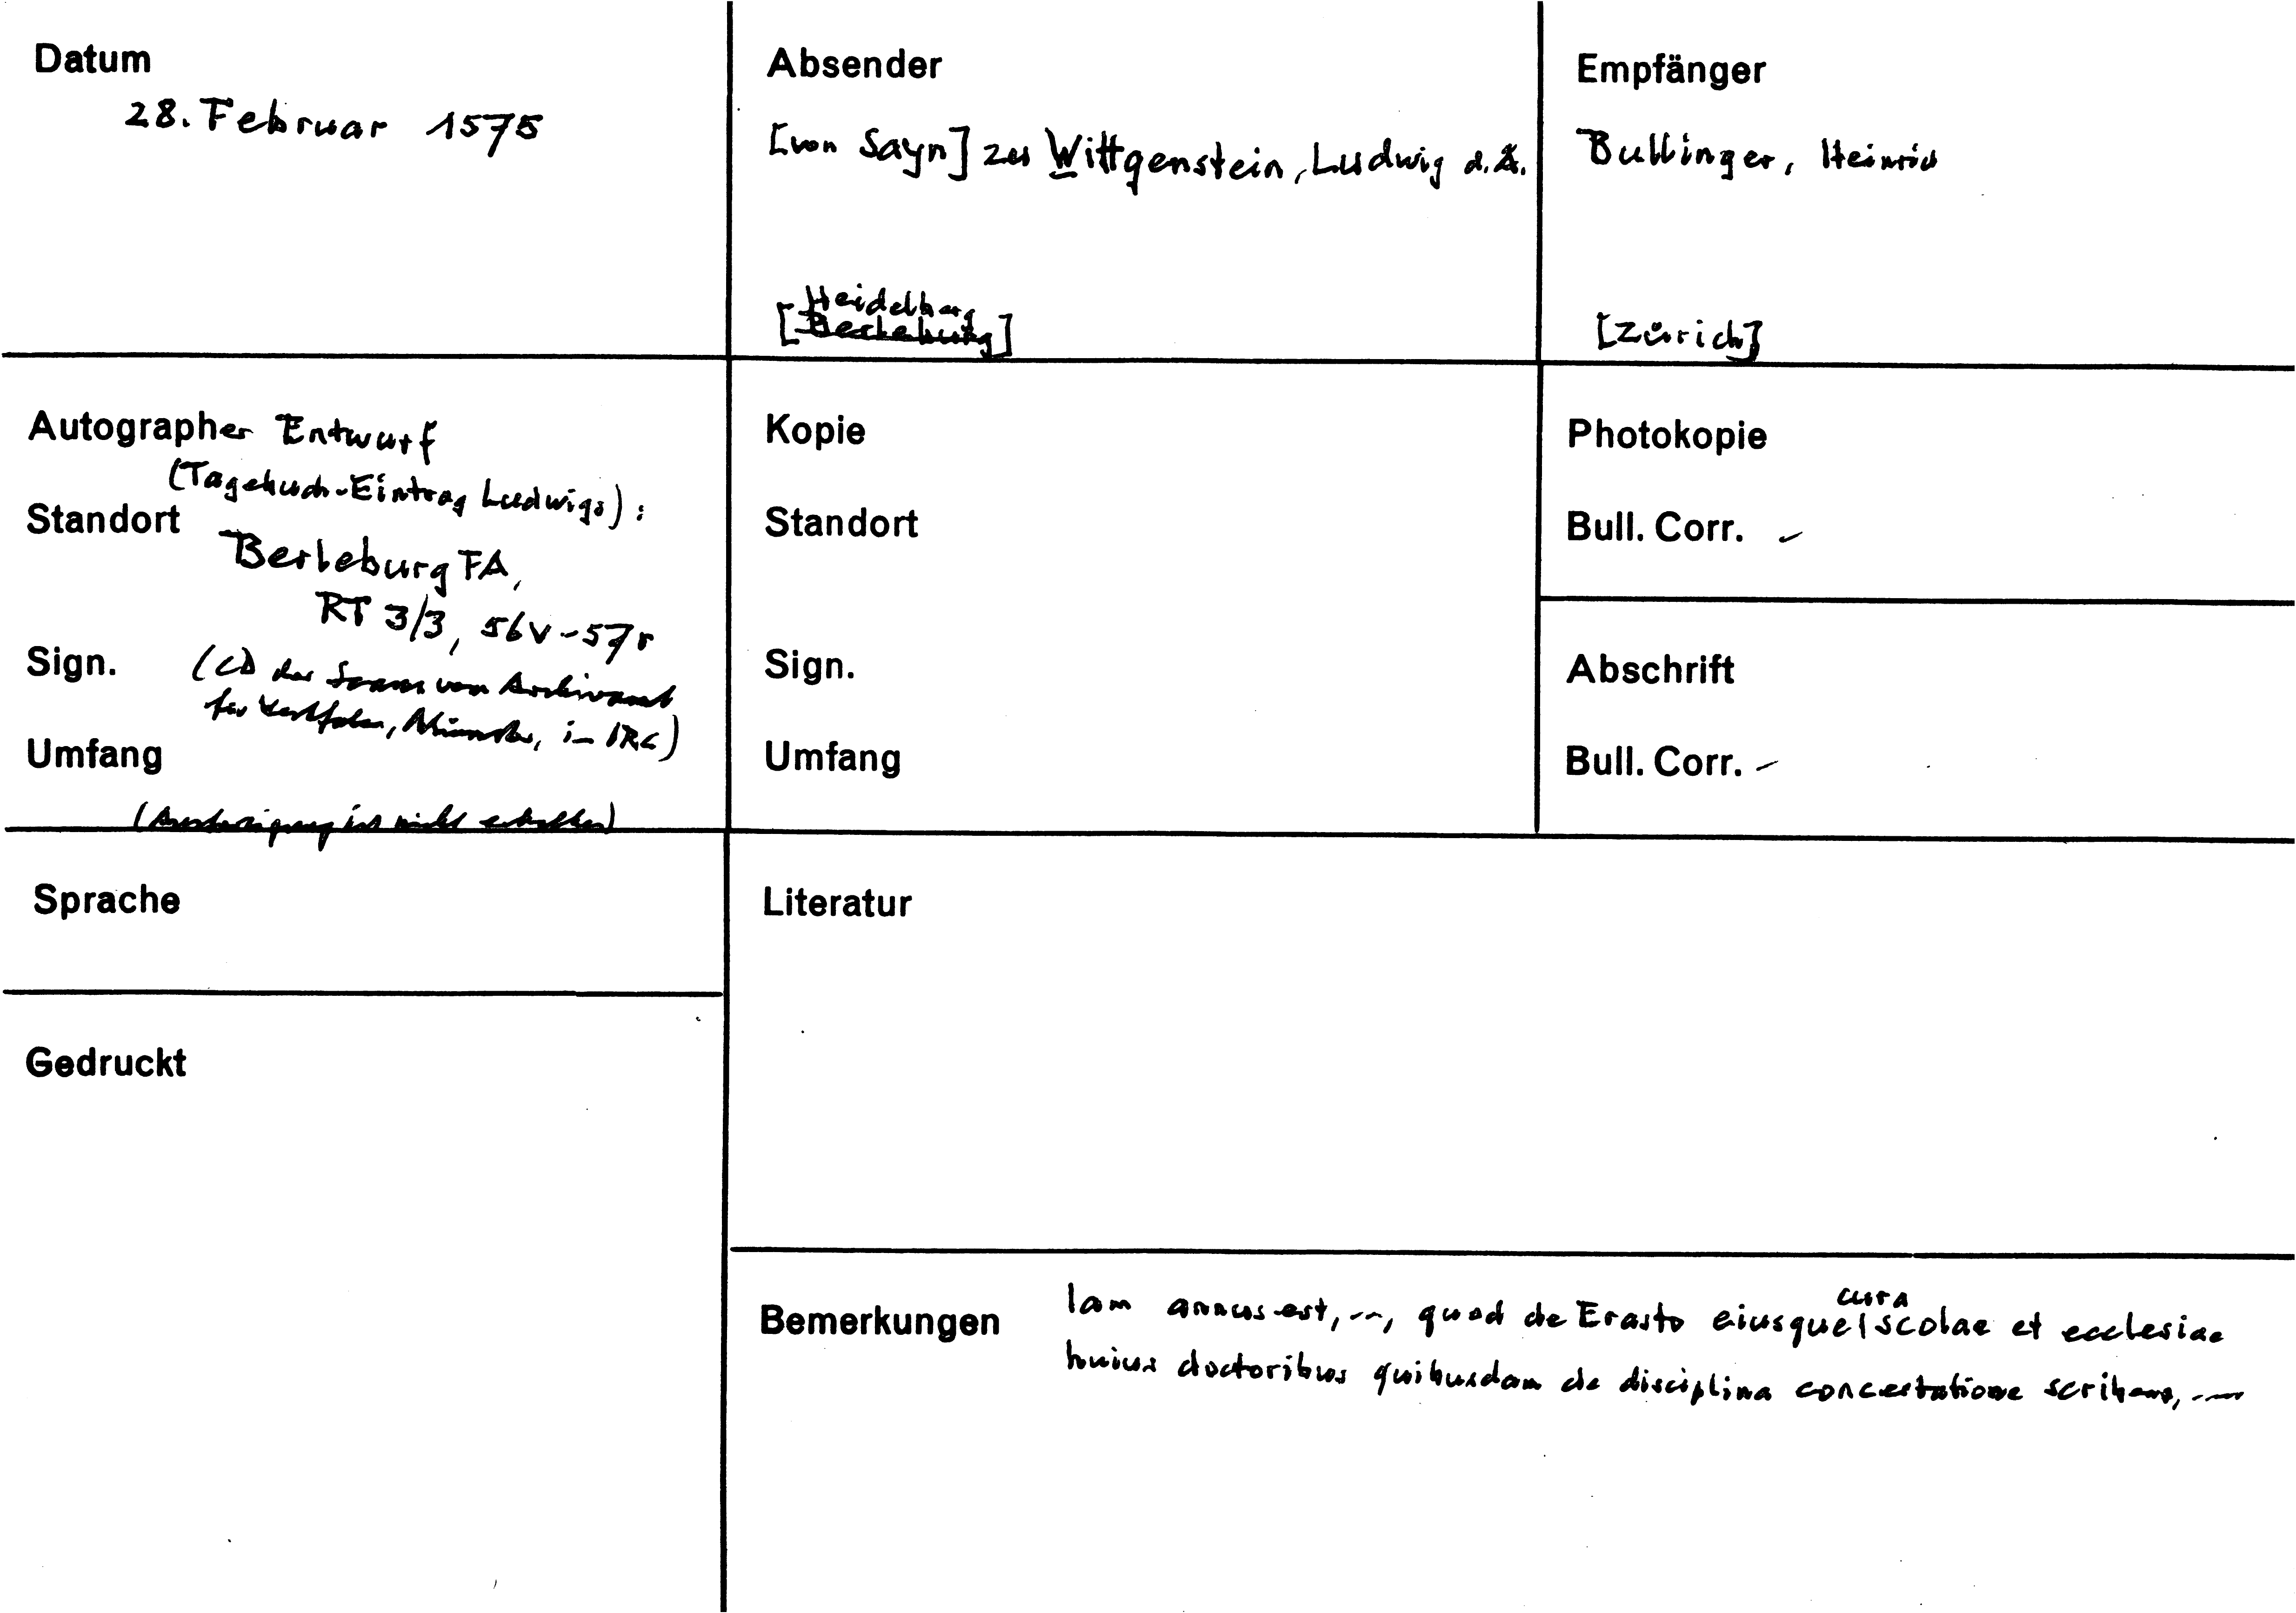 Datum
28. Februar 1575
Absender
[von Sayn] zu Wittgenstein, Ludwig d. Ä.
Heidelberg
[Berleburg]
Empfänger
Bullinger, Heinrich
[Zürich]
Autographer Entwurf
(Tagebuch-Eintrag Ludwigs):
Standort
Berleburg FA,
RT 3/3, 56v-57r
Sign.
(CD der Scans von Archivamt
für Westfalen, Münster, in IRG)
Umfang
(Ausfertigung ist nicht erhalten)
Kopie
Standort
Sign.
Umfang
Photokopie
Bull. Corr. -
Abschrift
Bull. Corr. -
Sprache
Gedruckt
Literatur
Bemerkungen
cura
Iam annus est, ..., quod de Erasto eiusque | scolae et ecclesiae
huius doctoribus quibusdam de disciplina concertatione scribens, ...